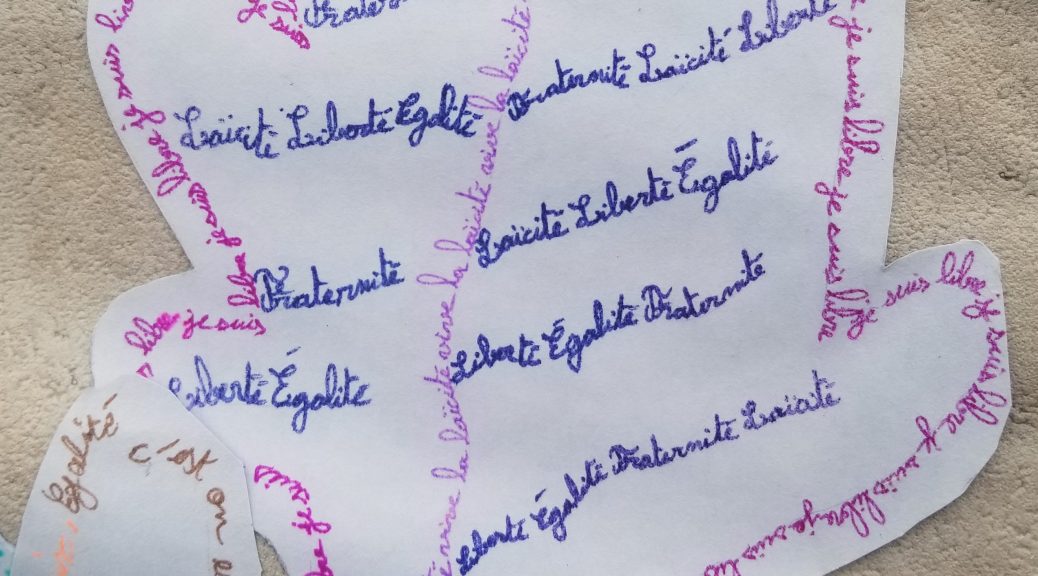 je suis libre je suis libre je suis
Laïcité Liberté Egalité
Fraternité
Liberté Égalité
vive la laïcité vive la laïcité vive la laïcité vive la laïcité
Fraternité Laïcité Liberté
Laïcité Liberté Égalité
Liberté Égalité Fraternité
Liberté Égalité Fraternité Laïcité
je suis libre je suis libre
je suis libre je suis libre je suis libre je suis
je suis
Egalité
c'est on